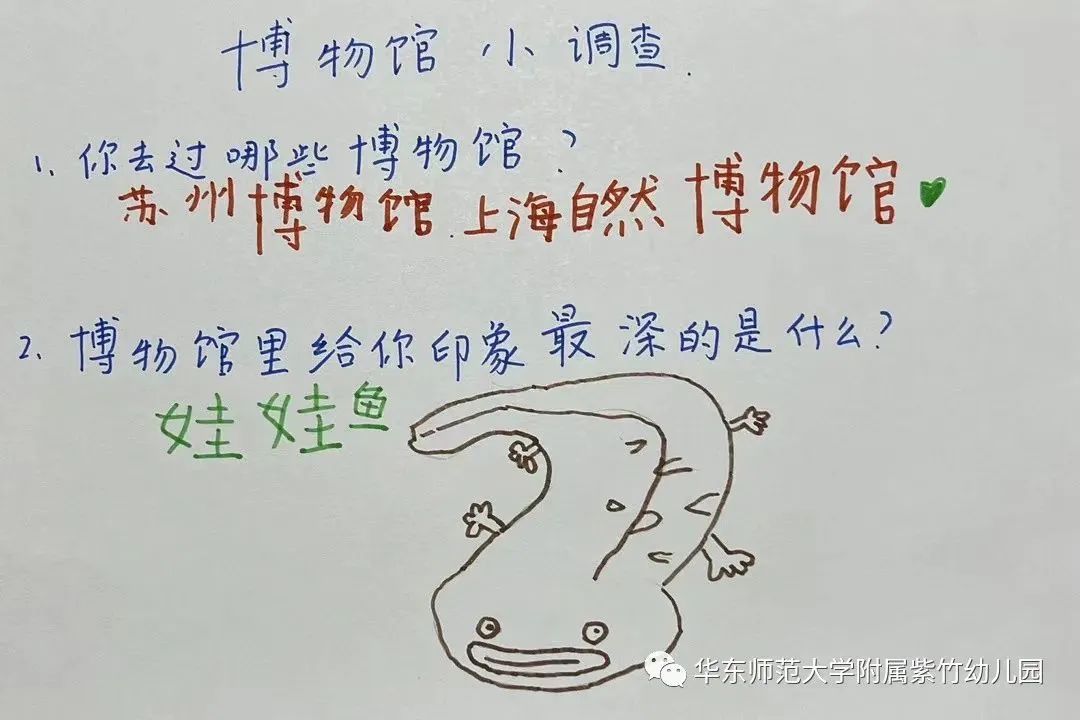 博物馆小调查.
1、你去过哪些博物馆?
苏州博物馆.上海自然博物馆
2、博物馆里给你印象最深的是什么?
娃娃鱼
华东师范大学附属紫竹幼儿园